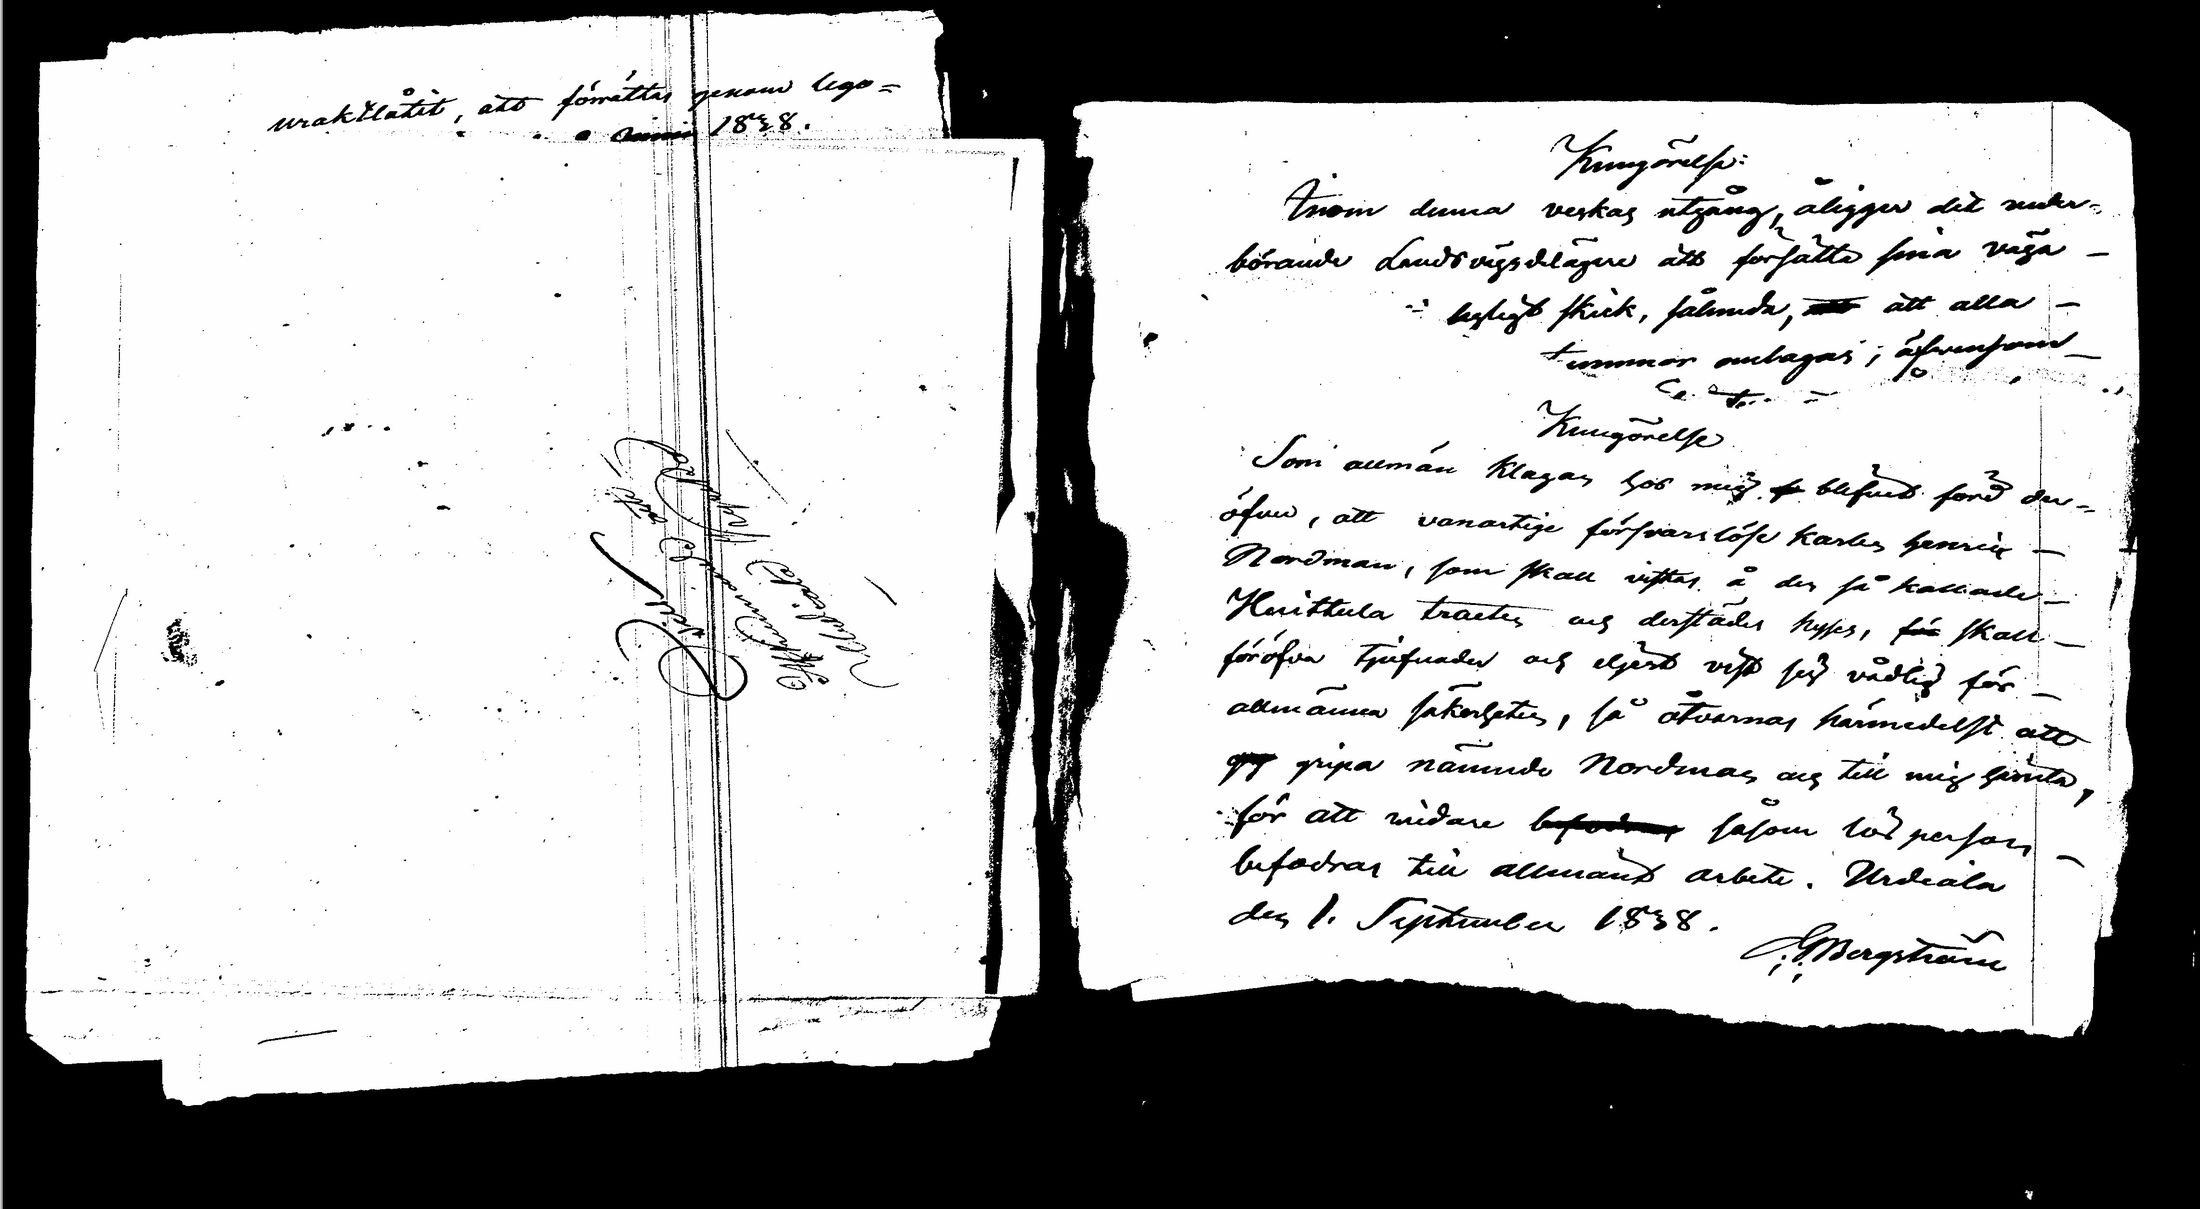 uraktlåtit, att förrättas genom lego=
1838.
Kungörelse:
Inom denna veckas utgång, åligger det veder=
börande Landsvägsdelägare att försätta sina väga
skick, sålunda, att alla
trummor omlagas; äfvensom
Kungörelse
Som allmän klagan hos mig blifvit förd der=
öfver, att vanartige försvarslöse karlen Henric
Nordman, som skall vistas å den så kallade
Huittula tracten och derstädes hyses, skall
föröfva tjufnader och eljest vist sig vådlig för
allmänna säkerheten, så åtvarnas härmedelst att
gripa nämnde Nordman och till mig hämta,
för att vidare befodras såsom lös person
befodras till allmänt arbete. Urdiala
den 1. September 1838.
Bergström